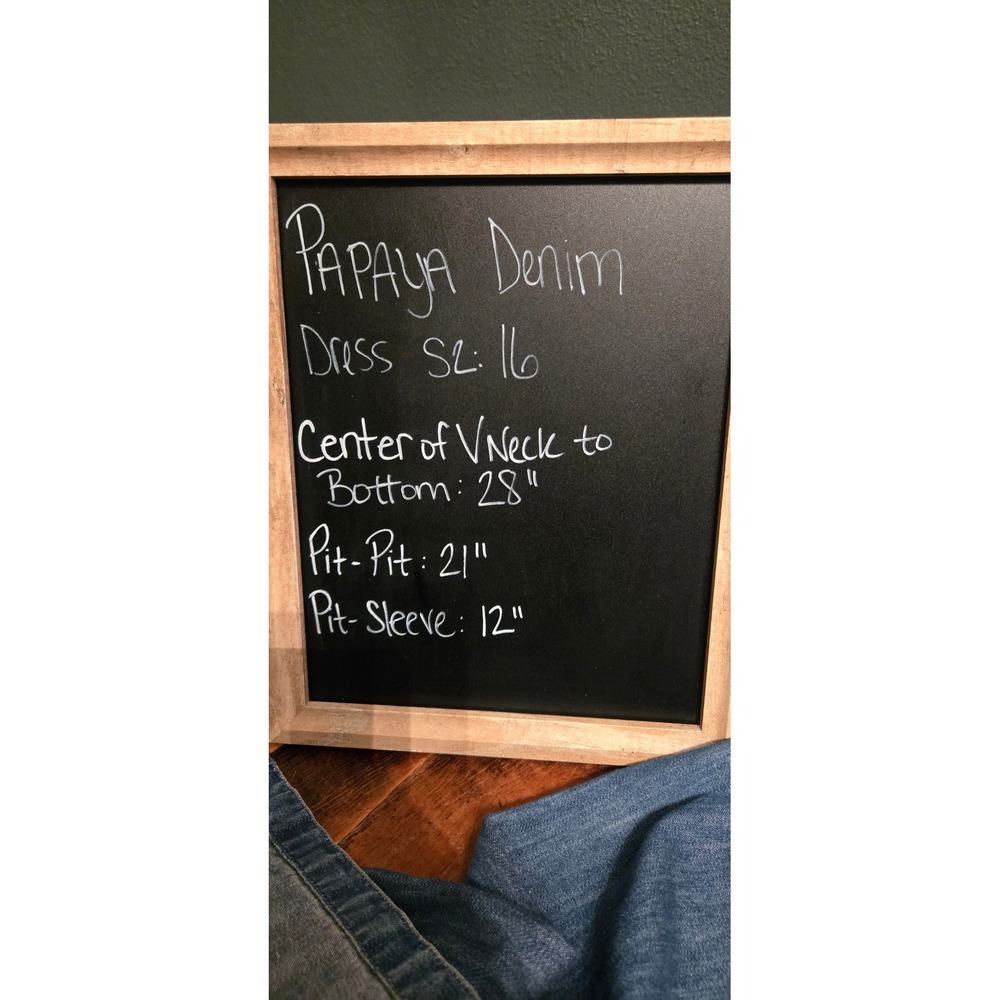 PAPAYA Denim
Dress SZ: 16
Center of V Neck to
Bottom: 28"
Pit-Pit: 21"
Pit-Sleeve: 12"